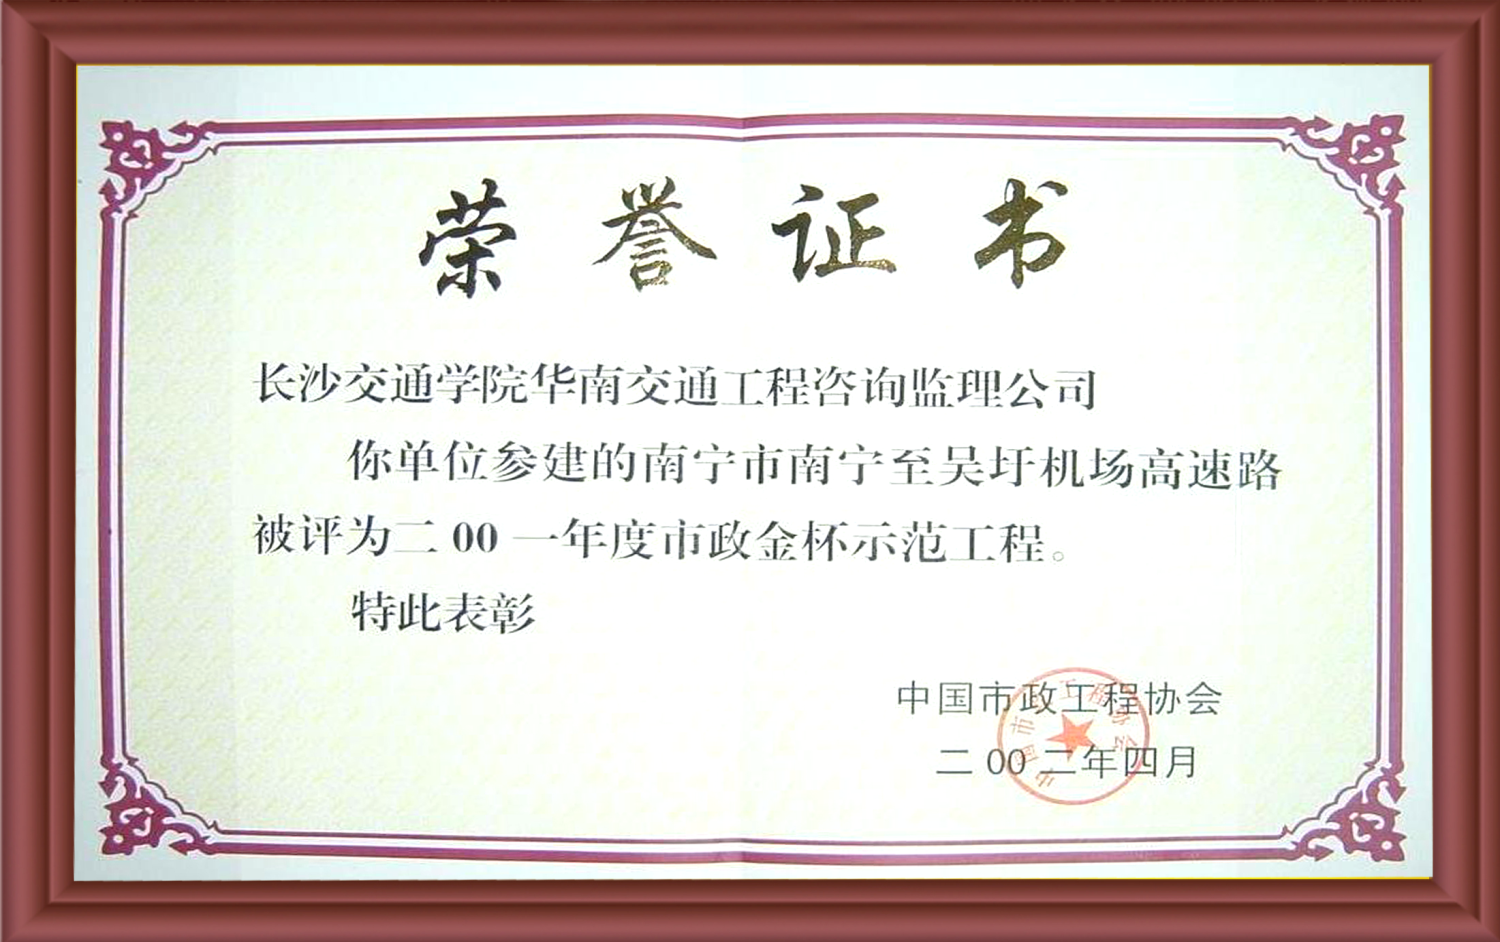 荣誉证书
长沙交通学院华南交通工程咨询监理公司
你单位参建的南宁市南宁至吴圩机场高速路
被评为二00一年度市政金杯示范工程。
特此表彰
中国市政工程协会
二00二年四月
中国市政工程协会